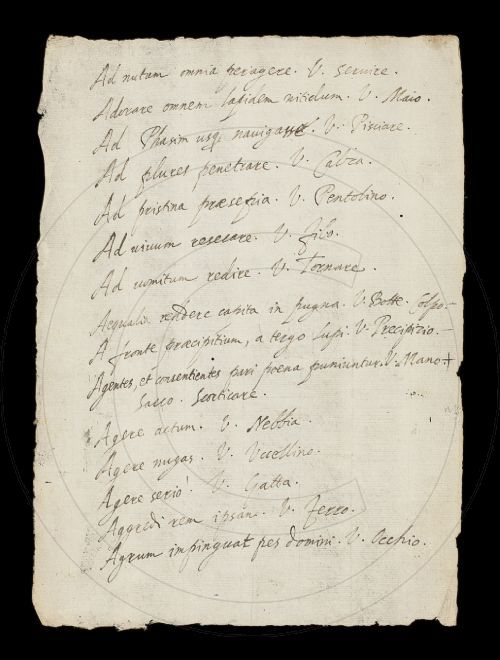 Ad nutum omnia peragere. V. Servire.
Adorare omnem lapidem nitidum. V. Maio.
Ad Phasim usq; navigasse. V. Pisciare.
Ad plures penetrare. V. Calza.
Ad pristina præsepia. V. Pentolino.
Ad vivum resecare. V. filo.
Ad vomitum redire. V. Tornare.
Aequalia reddere capita in pugna. V. Botte. Colpo.
A fronte præcipitium, a tergo lupi. V. Precipizio.
Agentes, et consentientes pari poena puniuntur. V. Mano +
Sacco. Scorticare.
Agere actum. V. Nebbia.
Agere nugas. V. Uccellino.
Agere serio. V. Gatta.
Aggredi rem ipsam. V. Ferro.
Agrum impinguat pes domini. V. Occhio.